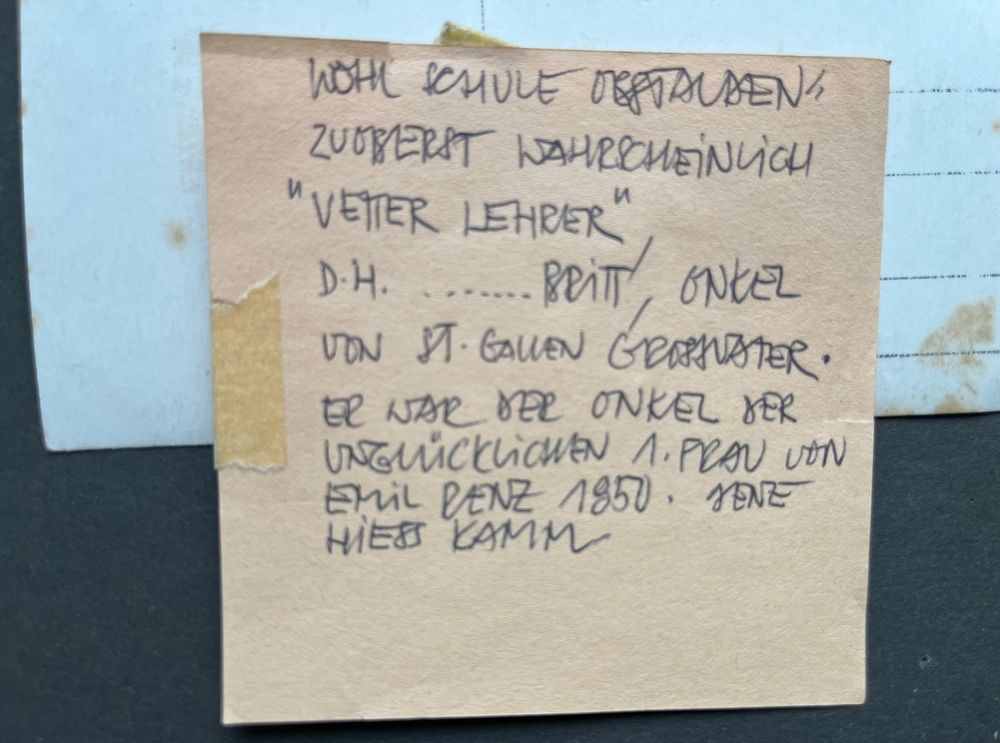 WOHL SCHULE OBSTALDEN
ZUOBERST WAHRSCHEINLICH
"VETTER LEHRER",
D.H. ........ BRITT, ONKEL
VON ST. GALLEN GROSSVATER.
ER WAR DER ONKEL DER
UNGLÜCKLICHEN 1. FRAU VON
EMIL BENZ 1850. JENE
HIESS KAMM